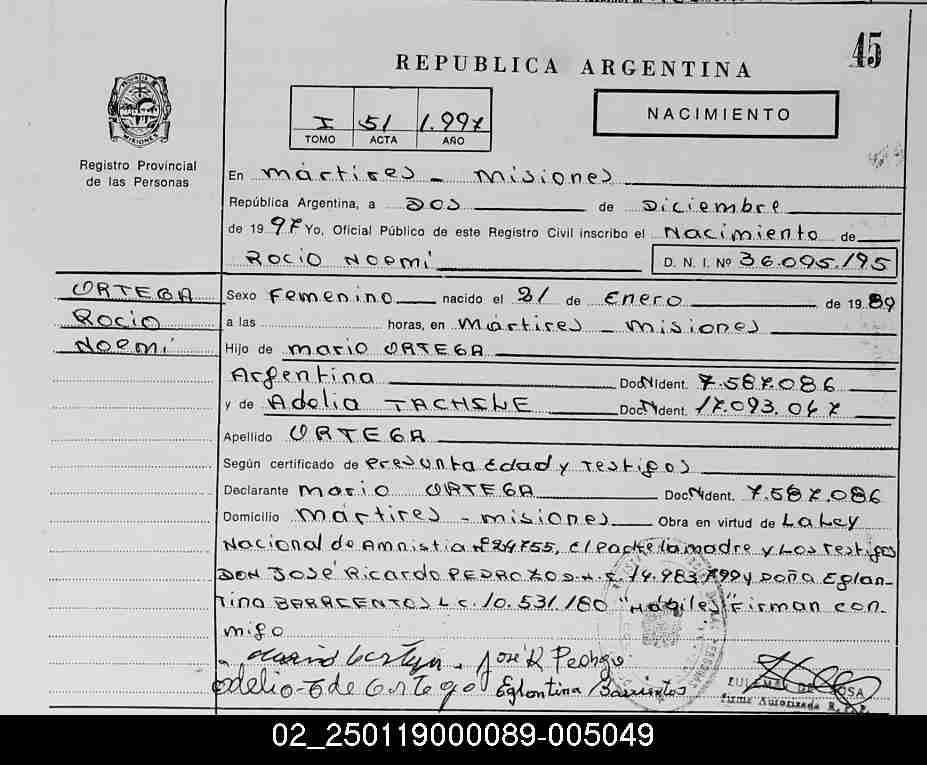 45
REPUBLICA ARGENTINA
I 51 1.997
TOMO ACTA AÑO
NACIMIENTO
MISIONES
Registro Provincial
de las Personas
En mártires - misiones
República Argentina, a DOS de Diciembre
de 1997 Yo, Oficial Público de este Registro Civil inscribo el Nacimiento de
ROCIO NOEMÍ D. N. I. Nº 36.095.195
ORTEGA
ROCIO
NOEMÍ
Sexo Femenino nacido el 21 de Enero de 1989
a las horas, en Mártires - misiones
Hijo de mario ORTEGA
Argentina Doc. Ident. 7.587.086
y de Adelia Doc. Ident. 17.093.047
Apellido ORTEGA
Según certificado de Presunta Edad y Testigos
Declarante mario ORTEGA Doc. Ident. 7.587.086
Domicilio mártires - misiones Obra en virtud de La Ley
Nacional de Amnistia Nº 24755, el Padre la madre y Los Testigos
DON JOSÉ Ricardo PEDROZO D.N.I. 14.983.799 y Doña Eglan-
tina L.C. 10.531.180 "Hábiles" Firman con-
migo
José R Pedrozo
Eglantina Barrientos
Firma Autorizada R. P. P.
02_250119000089-005049